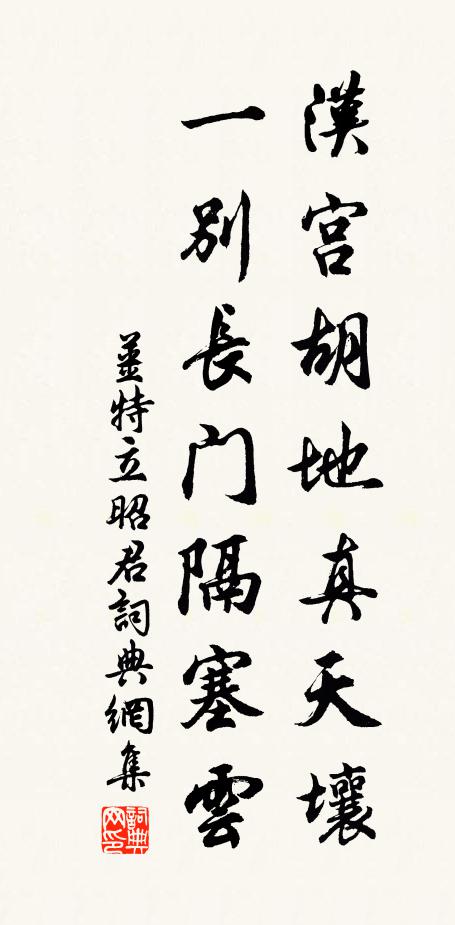 漢宮胡地真天壤
一別長门隔塞雲
薑特立昭君詞典網集
詞典网印